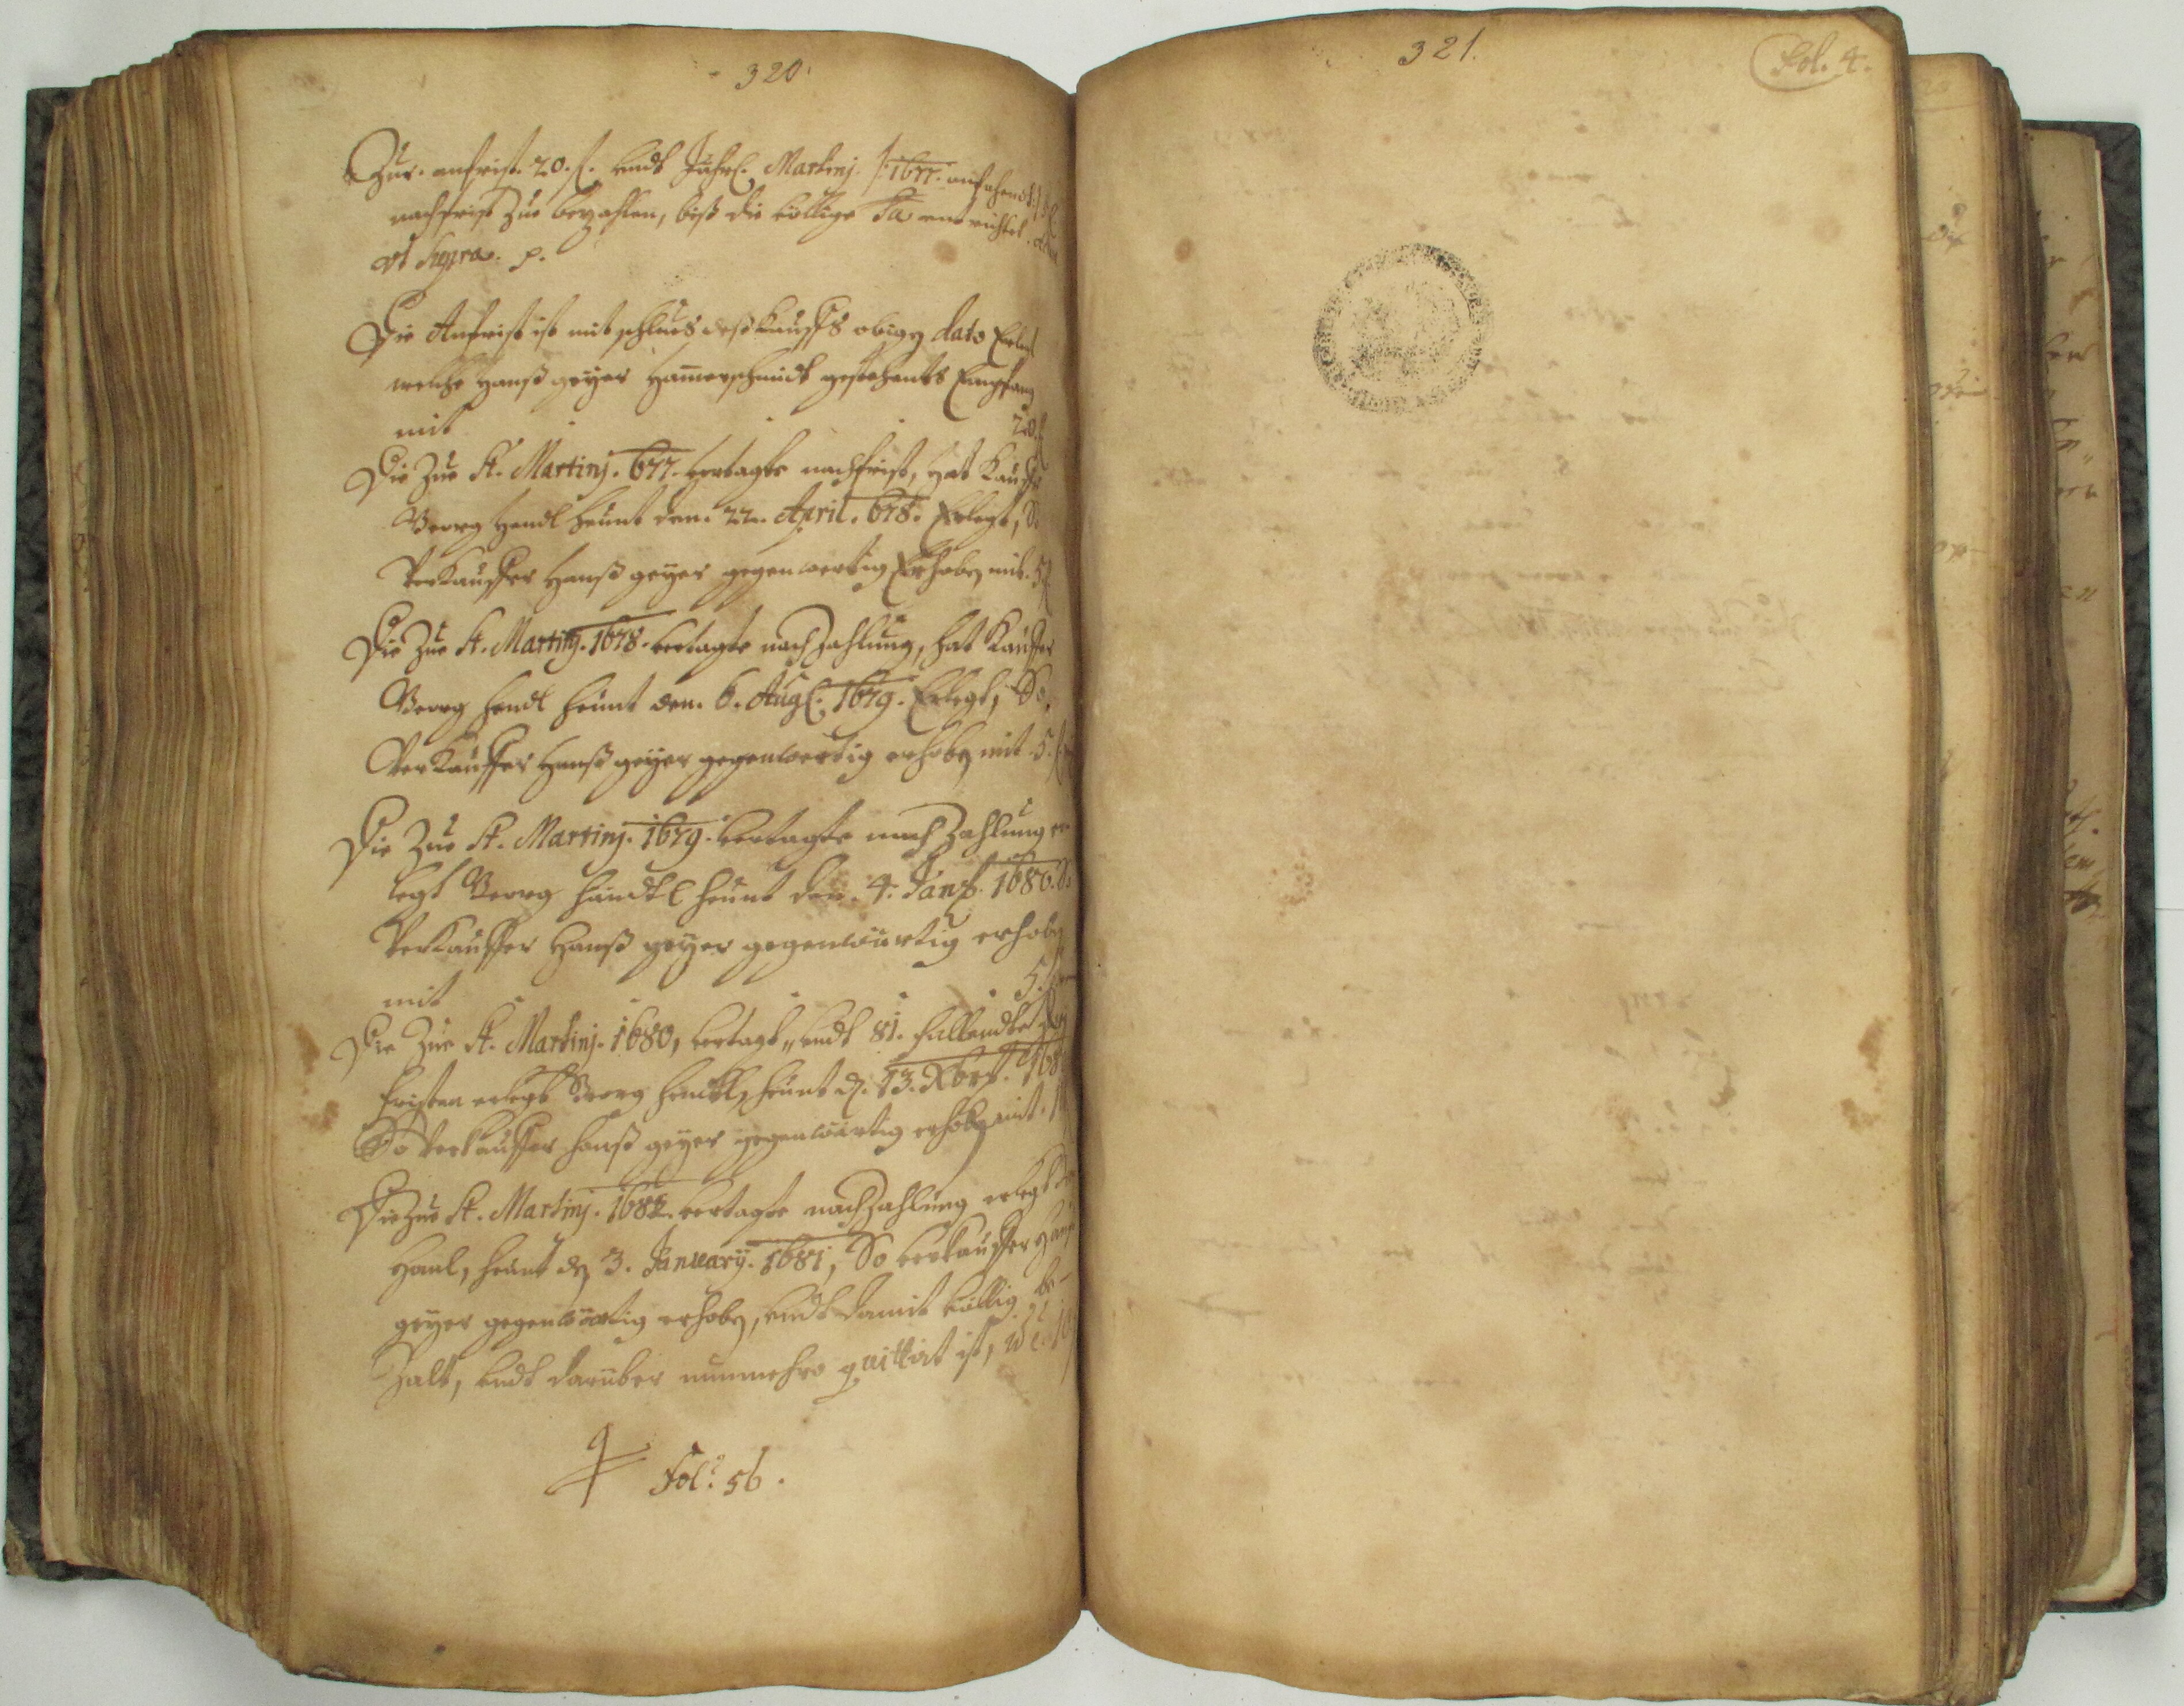 320
Zur anfrist 20. f. undt Jährl. Martinj. /: 1677. anfahendt :/ 5 f
nachfrist zue bezahlen, biß die völlige Sa entrichtet.
vt Supra. p.
Die Anfrist ist mit schlus deß Kauffs obigen dato Erlegt
welche Hanß geyer Hamerschmidt gestehents Empfang
mit 20. f
Die Zue St. Martinj. 677. vertagte nachfrist, hat Kauffer
Georg Hendl heunt den. 22. April. 678. Erlegt, So
Verkauffer Hanß geyer gegenwertig Erhoben mit. 5 f
Die Zue St. Martinj. 1678. vertagte nachzahlung, hat Kauffer
Georg Hendl heunt den. 6. Aug. 1679. Erlegt, So
Verkauffer Hanß geyer gegenwertig erhoben mit 5. f
Die Zue St. Martinj. 1679. vertagte nachzahlung er
legt Georg Händtl heunt den. 4. Jan. 1680. So
Verkauffer Hanß geyer gegenwürtig erhoben
mit 5. f
Die Zue St. Martinj. 1680, vertagt, undt 81. fallendte
fristen erlegt Georg Hendtl, heunt d. 13. Xbris. 168
So Verkauffer Hanß geyer gegenwürtig erhoben mit. 1
Die Zue St. Martinj. 1682. vertagte nachzahlung erlegt
Hanl, heunt den 3. January. 1681, So verkauffer Hanß
geyer gegenwürtig erhoben, undt damit völlig be-
zalt, undt darüber nunmehro quittirt ist,
Fol: 56.
321.
Fol. 4.